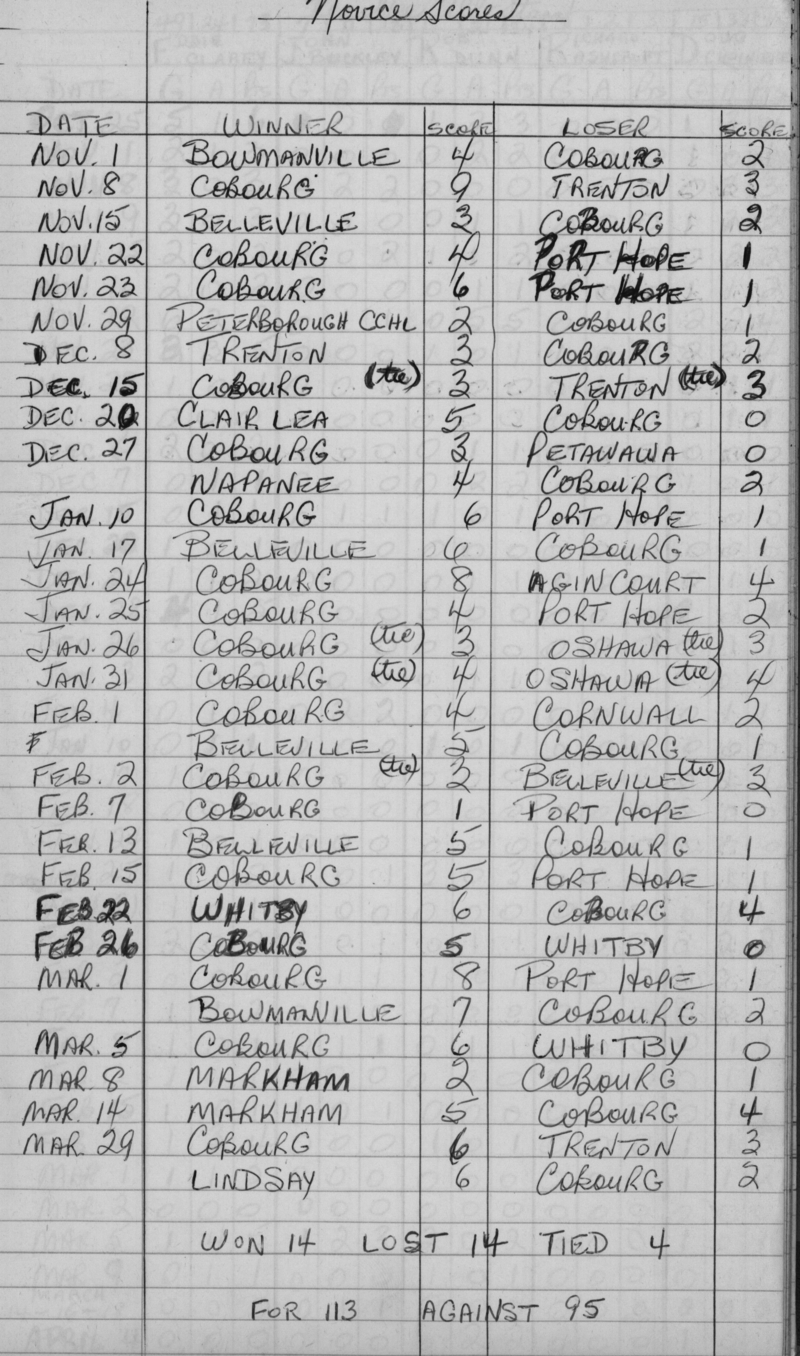 Novice Scores
DATE WINNER SCORE LOSER SCORE
NOV. 1 BOWMANVILLE 4 COBOURG 2
NOV. 8 COBOURG 9 TRENTON 3
NOV. 15 BELLEVILLE 3 COBOURG 2
NOV. 22 COBOURG 4 PORT HOPE 1
NOV. 23 COBOURG 6 PORT HOPE 1
NOV. 29 PETERBOROUGH CCHL 2 COBOURG 1
DEC. 8 TRENTON 3 COBOURG 2
DEC. 15 COBOURG (tie) 3 TRENTON (tie) 3
DEC. 20 CLAIR LEA 5 COBOURG 0
DEC. 27 COBOURG 3 PETAWAWA 0
NAPANEE 4 COBOURG 2
JAN. 10 COBOURG 6 PORT HOPE 1
JAN. 17 BELLEVILLE 6 COBOURG 1
JAN. 24 COBOURG 8 AGINCOURT 4
JAN. 25 COBOURG 4 PORT HOPE 2
JAN. 26 COBOURG (tie) 3 OSHAWA (tie) 3
JAN. 31 COBOURG (tie) 4 OSHAWA (tie) 4
FEB. 1 COBOURG 4 CORNWALL 2
F BELLEVILLE 5 COBOURG 1
FEB. 2 COBOURG (tie) 3 BELLEVILLE (tie) 3
FEB. 7 COBOURG 1 PORT HOPE 0
FEB. 13 BELLEVILLE 5 COBOURG 1
FEB. 15 COBOURG 5 PORT HOPE 1
FEB 22 WHITBY 6 COBOURG 4
FEB 26 COBOURG 5 WHITBY 0
MAR. 1 COBOURG 8 PORT HOPE 1
BOWMANVILLE 7 COBOURG 2
MAR. 5 COBOURG 6 WHITBY 0
MAR. 8 MARKHAM 2 COBOURG 1
MAR. 14 MARKHAM 5 COBOURG 4
MAR. 29 COBOURG 6 TRENTON 3
LINDSAY 6 COBOURG 2
WON 14 LOST 14 TIED 4
FOR 113 AGAINST 95